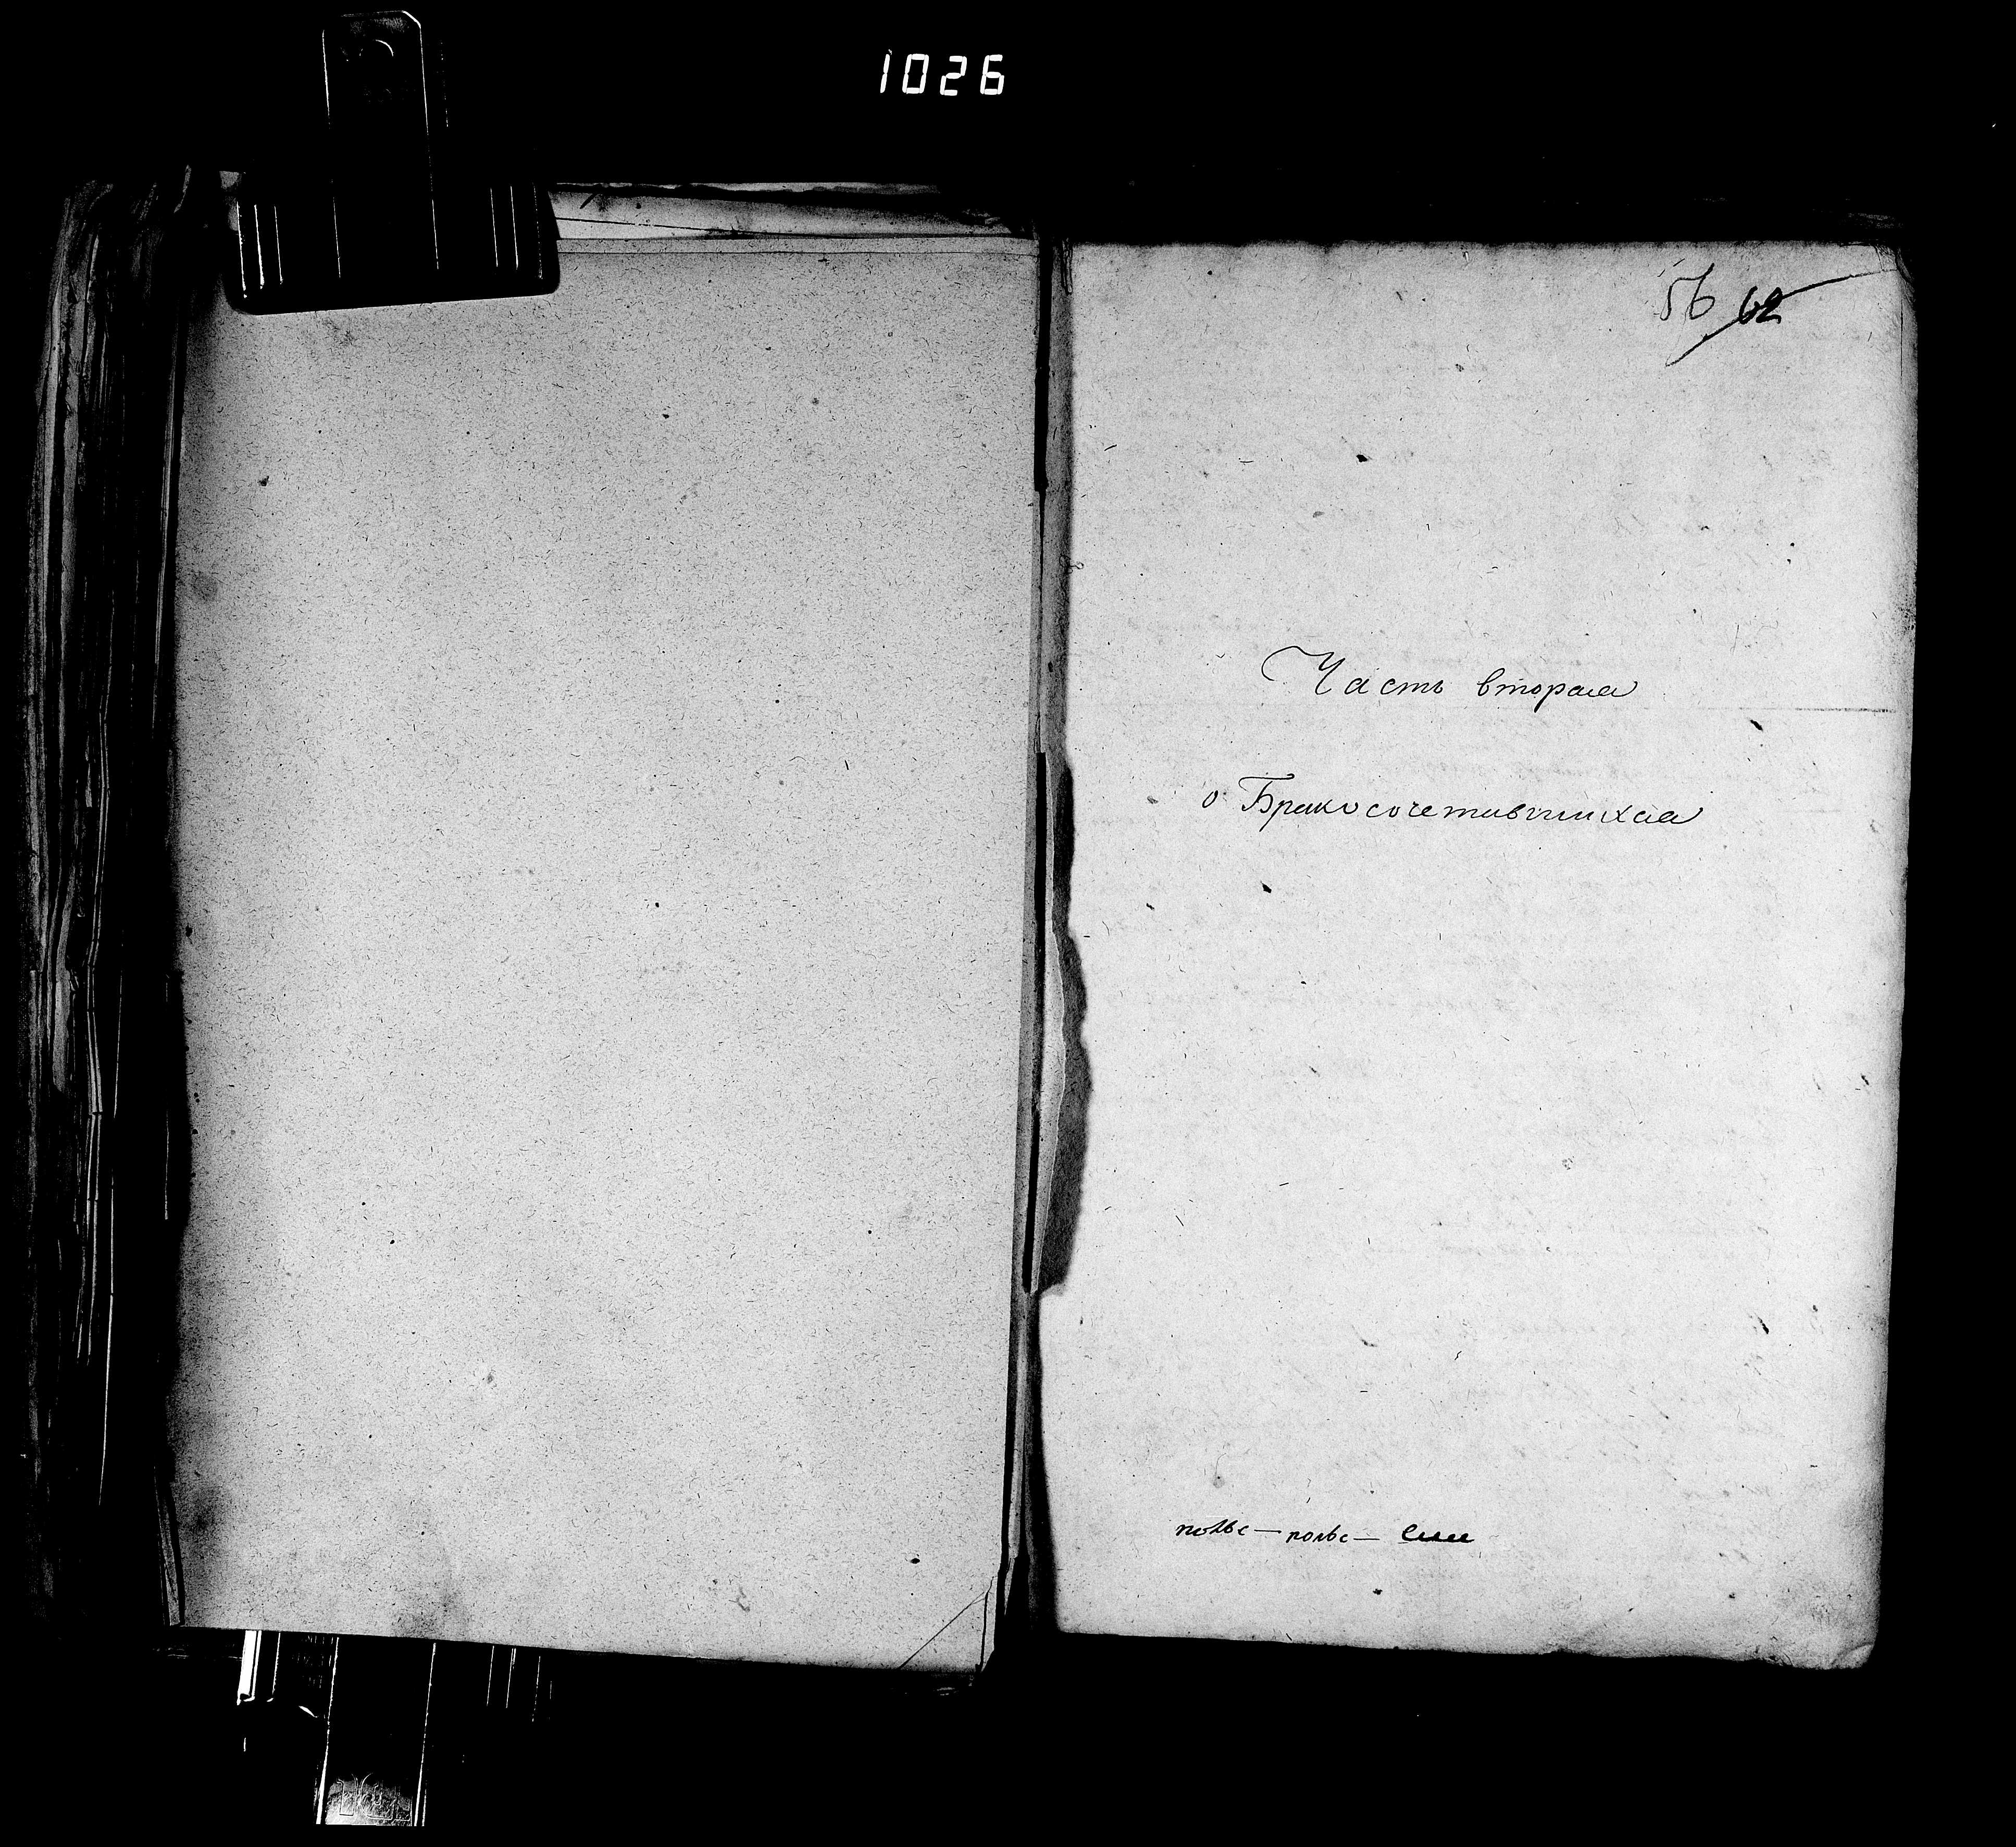 1026
56 62
Часть вторая
о Бракосочетавшихся